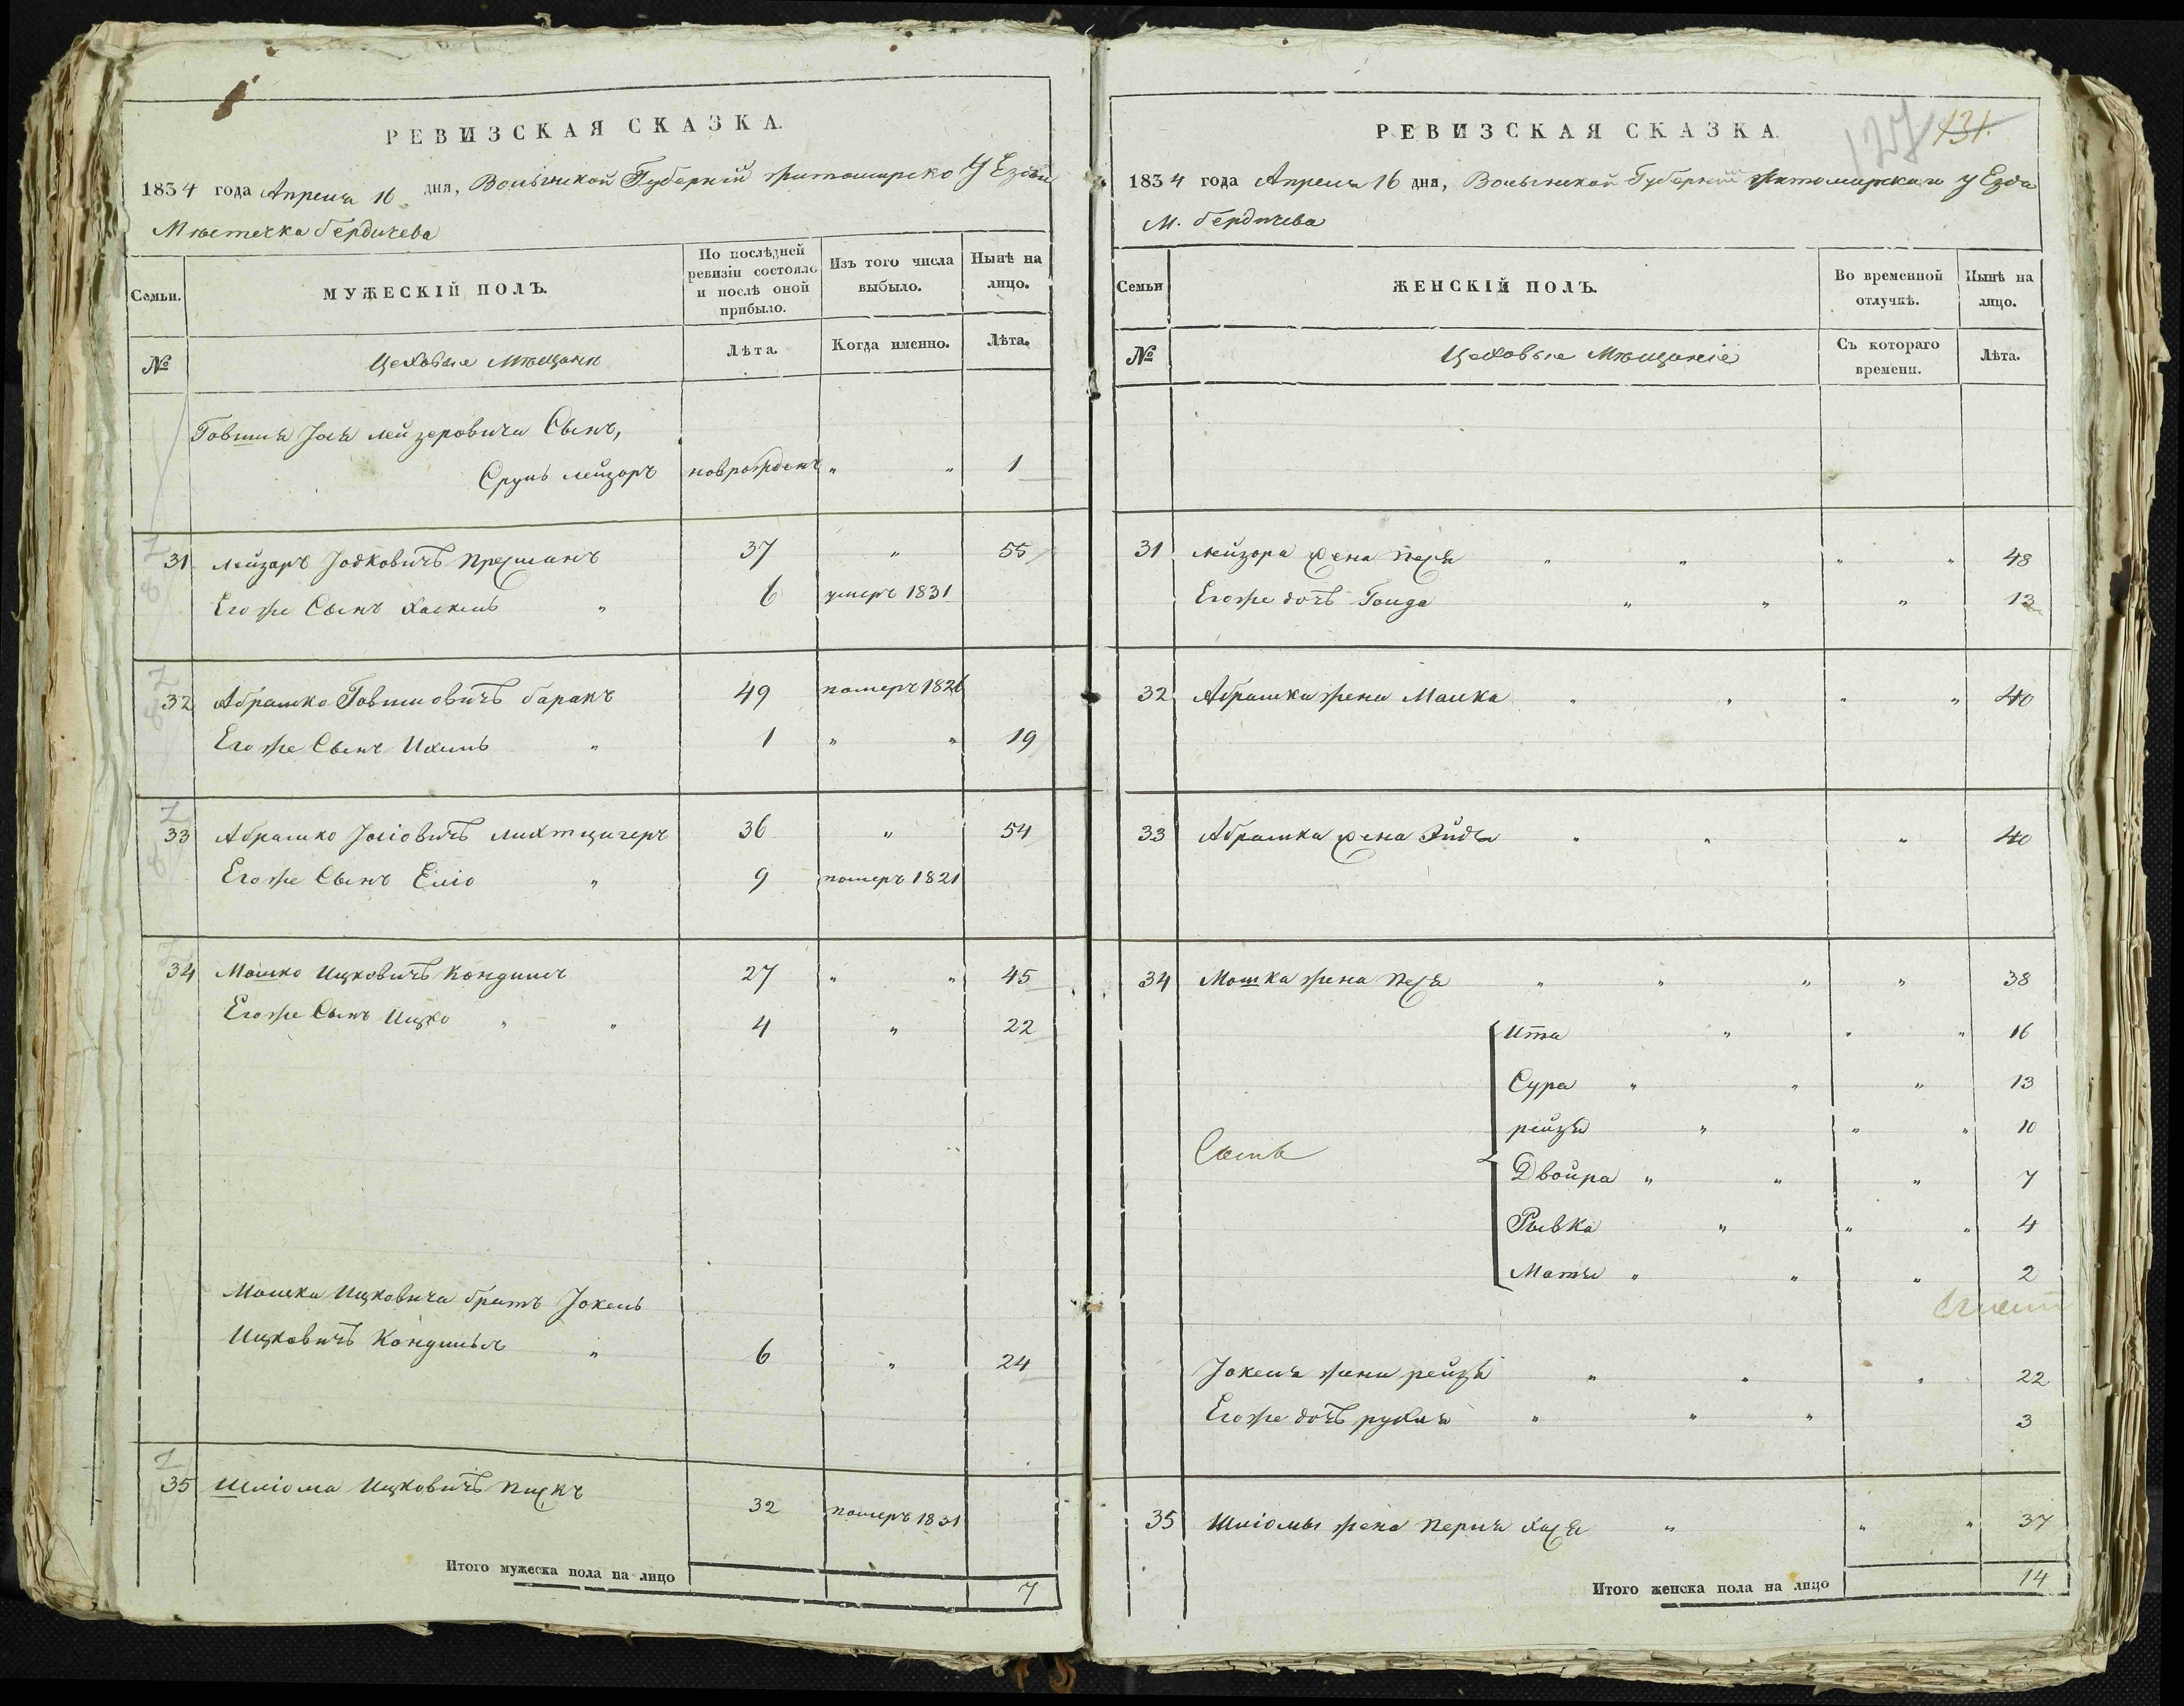 РЕВИЗСКАЯ СКАЗКА.
1834 года Апреля 16 дня, Волынской Губернии Житомирско Уезда
Мѣстечка Бердичева
Семьи.
МУЖЕСКІЙ ПОЛЪ.
По послѣдней ревизіи состояло и послѣ оной прибыло.
Изъ того числа выбыло.
Нынѣ на лицо.
№
Цеховые Мѣщани
Лѣта.
Когда именно.
Лѣта.
Говшия Іося Лейзеровича Сынъ,
Сруль Лейзоръ новрожденъ " " 1
31 Лейзоръ Іосковичъ 37 " 55
Его же Сынъ Хаскель " 6 умеръ 1831
32 Абрамко Говшиовичъ баракъ 49 померъ 1826
Его же Сынъ Ихиль " 1 " " 19
33 Абрамко Іосіовичъ Лихтцигеръ 36 " 54
Его же Сынъ Еліо " 9 померъ 1821
34 Мошко Ицковичъ 27 " " 45
Его же Сынъ Ицко " " 4 " 22
Мошка Ицковича братъ Іокель
Ицковичъ " 6 " 24
35 Шліома Ицковичъ 32 померъ 1831
Итого мужеска пола на лицо 7
РЕВИЗСКАЯ СКАЗКА.
127 131.
1834 года Апреля 16 дня, Волынской Губерніи Житомирскаго уезда
М. бердичева
Семьи
ЖЕНСКІЙ ПОЛЪ.
Во временной отлучкѣ.
Нынѣ на лицо.
№
Цеховые Мѣщаніе
Съ котораго времени.
Лѣта.
31 Лейзора жена Песя " " " " 48
Его же дочь Голда " " " 13
32 Абрамка жена Малка " " " " 40
33 Абрамка жена Эйдя " " " 40
34 Мошка жена Песя " " " " 38
Ита " " " 16
Сура " " " 13
рейзя " " " 10
Двойра " " " 7
Рывка " " " 4
Матя " " " 2
Іокеля жена рейзя " " " 22
Его же дочь рухля " " " 3
35 Шліомы жена Перля Хася " " " 37
Итого женска пола на лицо 14